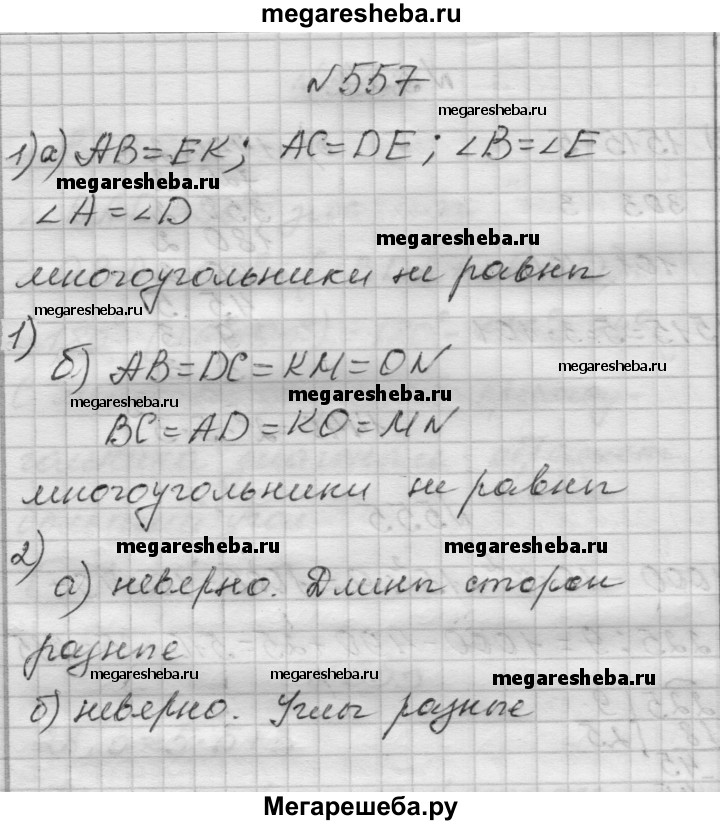 megaresheba.ru
№557
megaresheba.ru
1) а) AB=EK; AC=DE; ∠B=∠E
megaresheba.ru
∠A=∠D
megaresheba.ru
многоугольники не равны
megaresheba.ru
1)
б) AB=DC=KM=ON
megaresheba.ru
megaresheba.ru
megaresheba.ru
BC=AD=KO=MN
многоугольники не равны
2)
megaresheba.ru megaresheba.ru
а) неверно. Длины сторон
разные
megaresheba.ru megaresheba.ru megaresheba.ru
б) неверно. Углы разные
Мегарешеба.ру